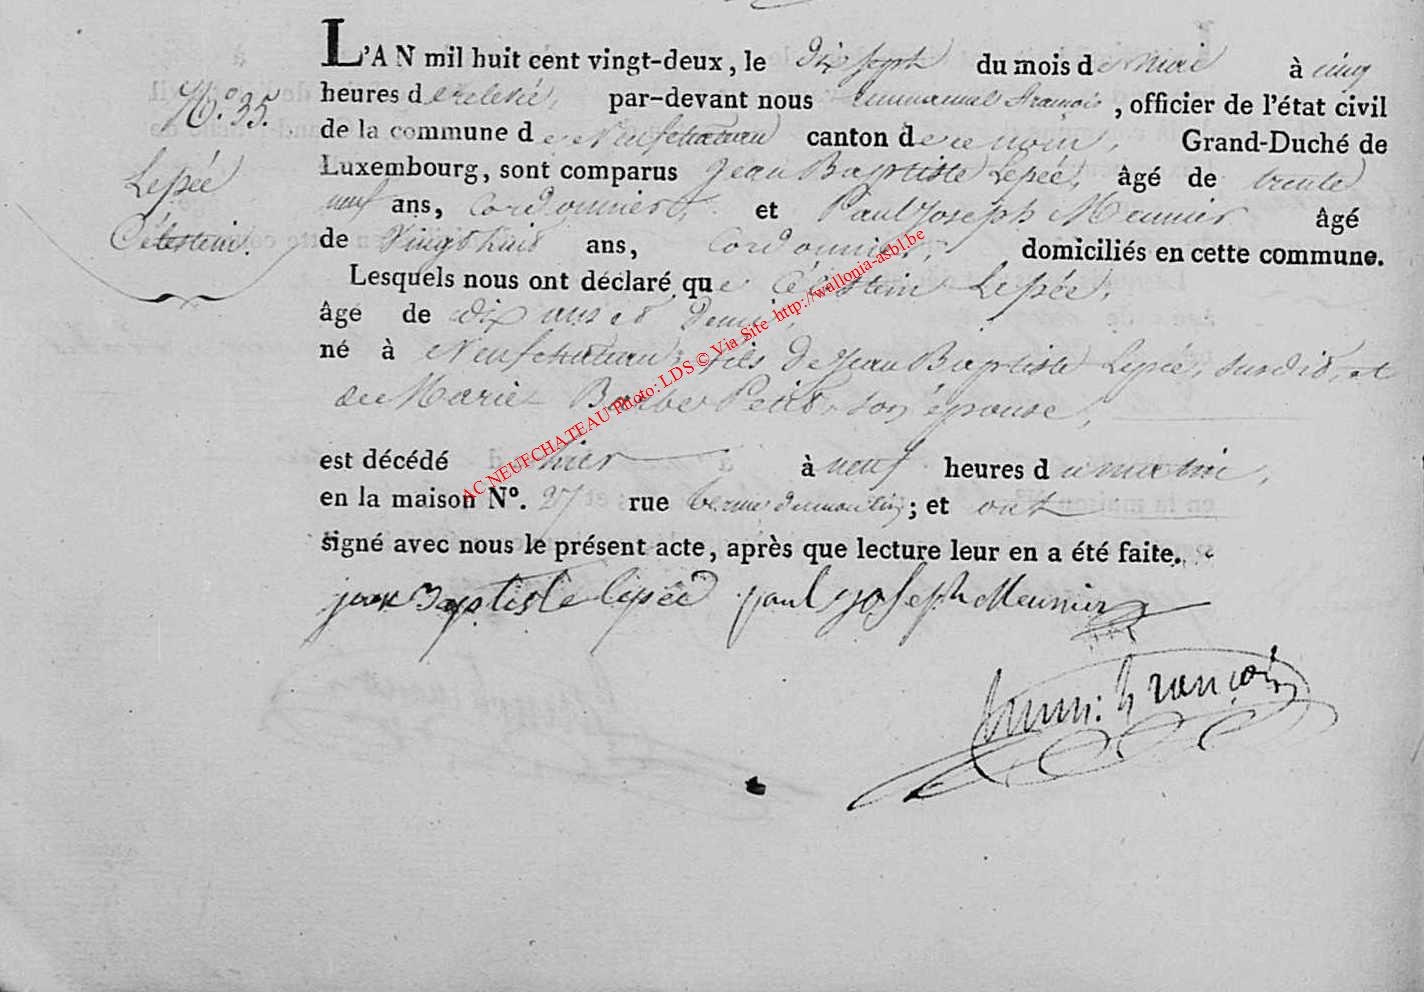 L'AN mil huit cent vingt-deux, le dix sept du mois de mai à cinq
N.° 35. heures de relevée, par-devant nous Emmanuel François, officier de l'état civil
de la commune de Neufchateau canton de ce nom, Grand-Duché de
Lepée Luxembourg, sont comparus Jean Baptiste Lepée, âgé de trente
neuf ans, Cordonnier, et Paul Joseph Meunier âgé
Célestein. de Vingt huit ans, Cordonnier, domiciliés en cette commune.
Lesquels nous ont déclaré que Célestein Lepée,
âgé de dix ans et demi,
né à Neufchateau, fils de Jean Baptiste Lepée, susdit, et
de Marie Barbe Petit, son épouse,
est décédé hier à neuf heures du matin,
en la maison N°. 27 rue terme du moulin; et ont
signé avec nous le présent acte, après que lecture leur en a été faite.
jean Baptiste lepée paul joseph Meunier
Emm: François
AC NEUFCHATEAU Photo: LDS © Via Site http://wallonia-asbl.be